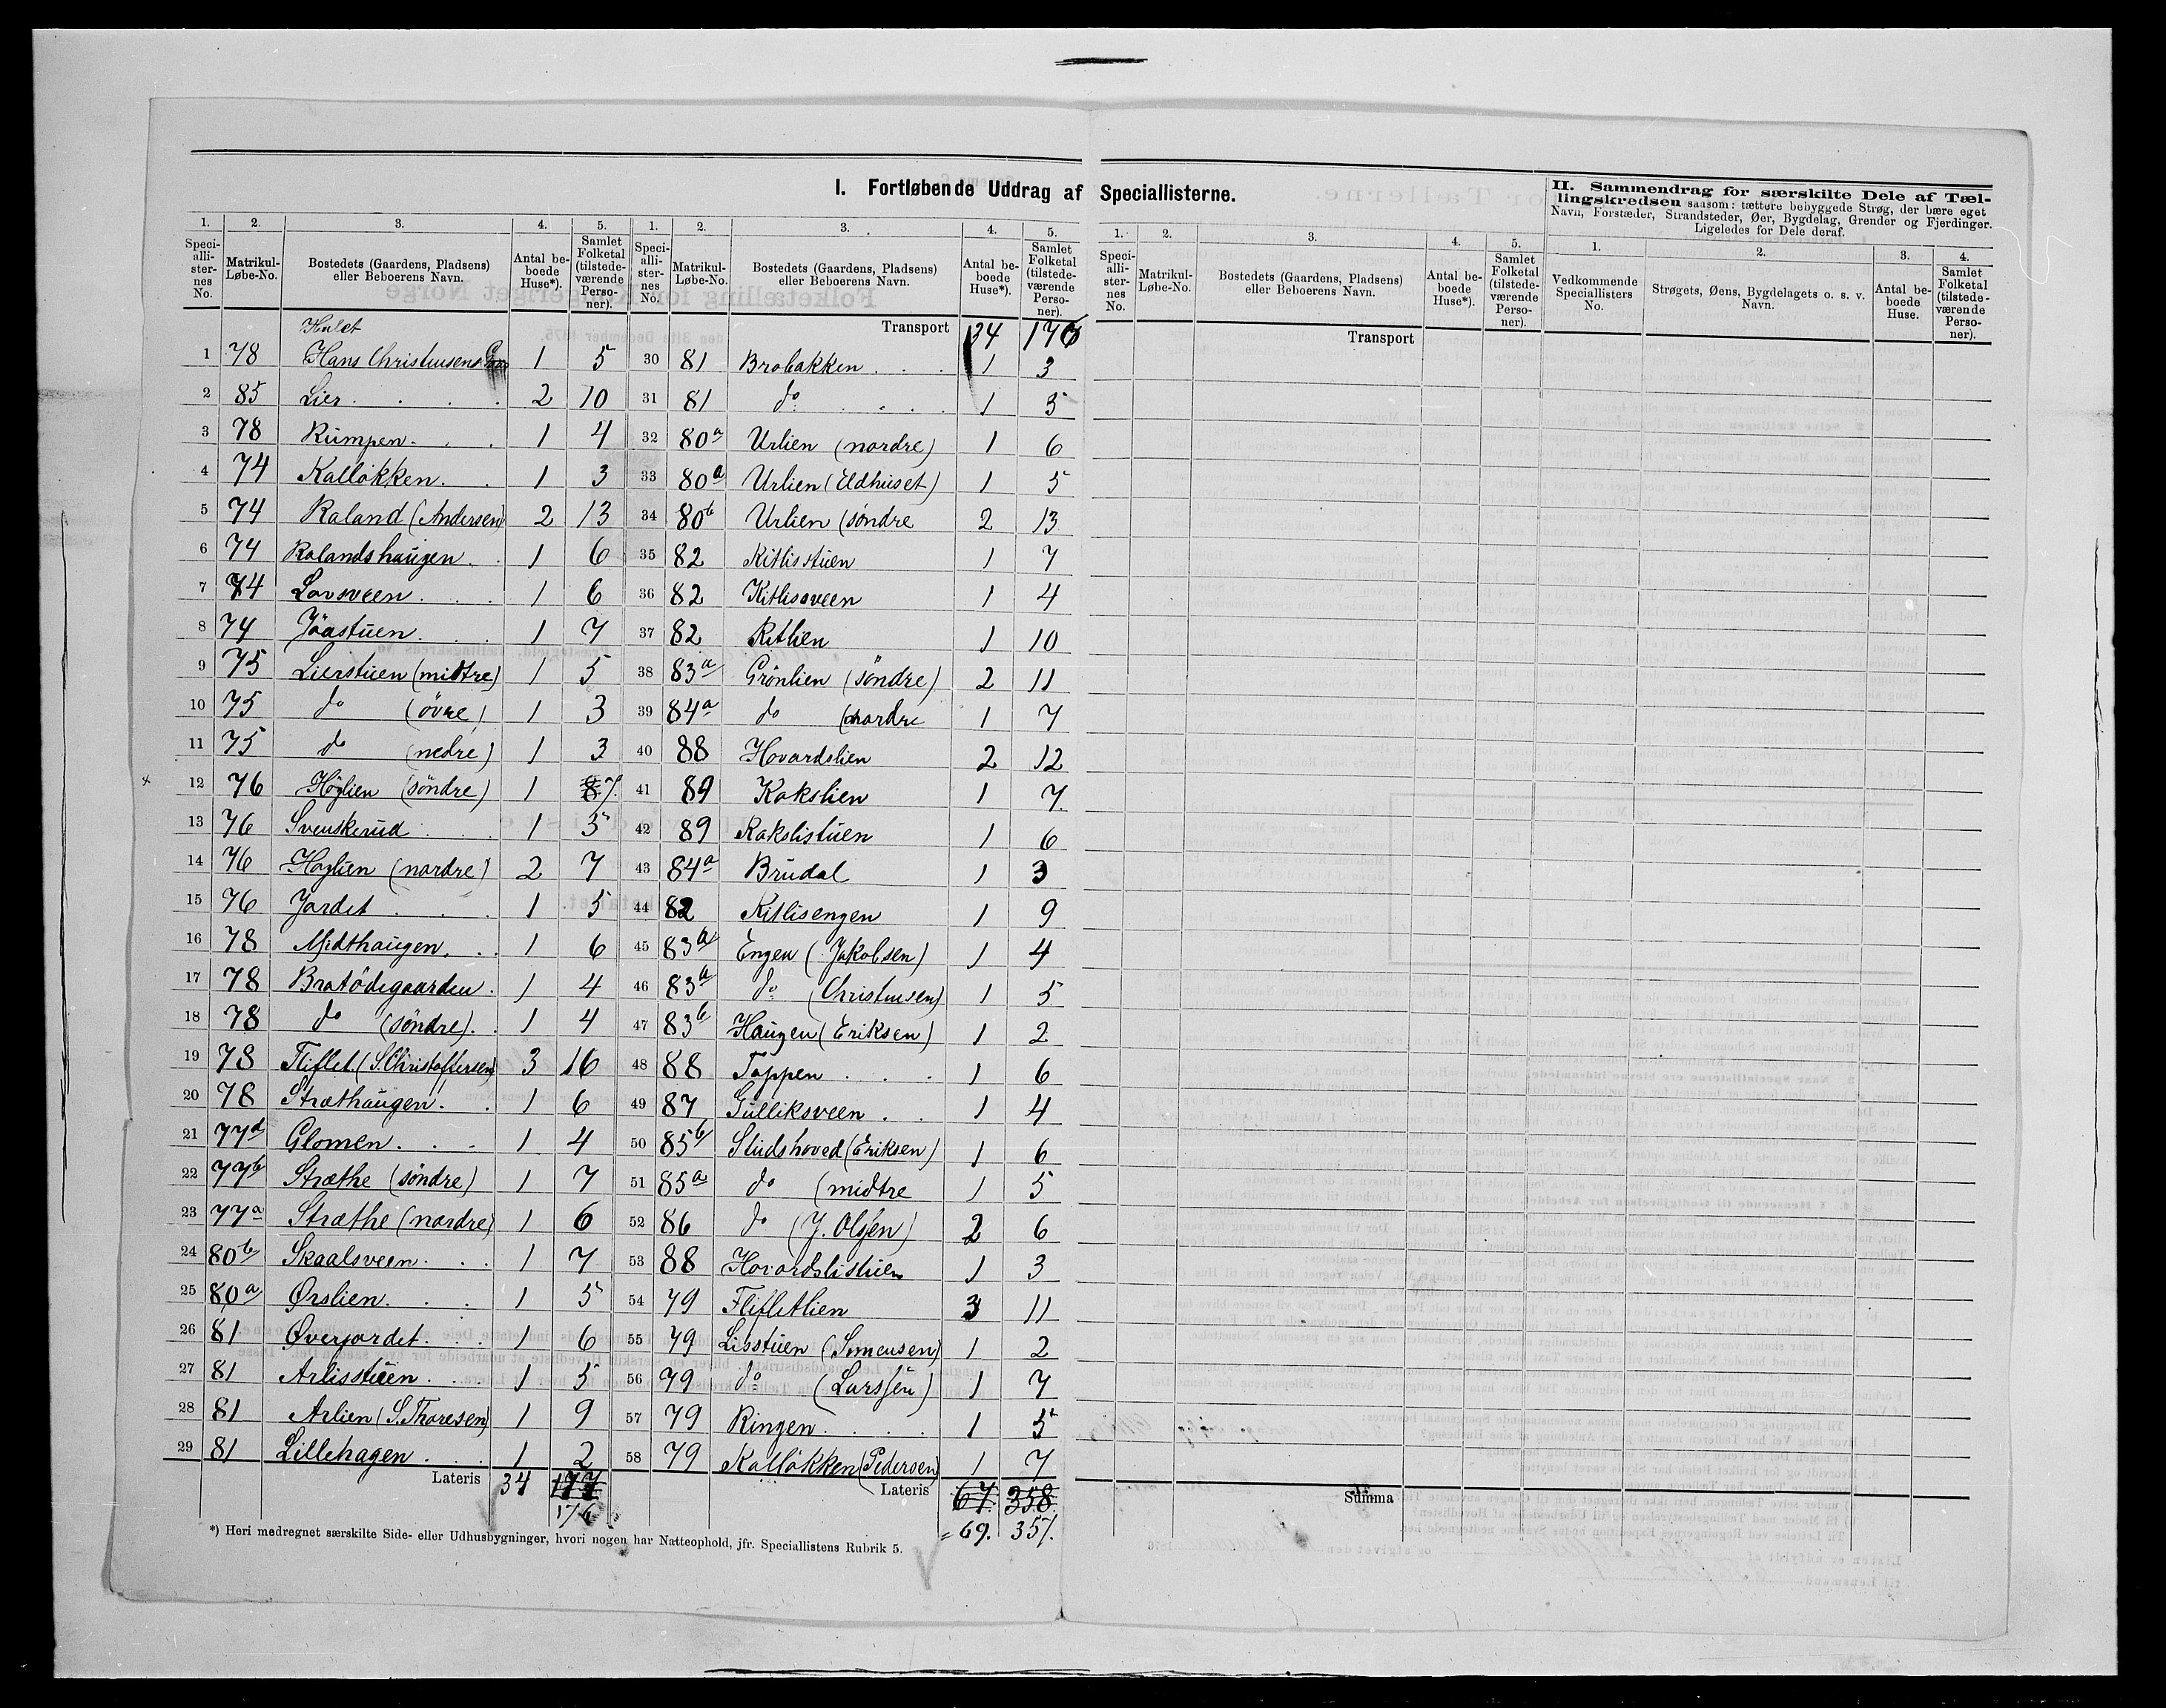 I. Fortløbende Uddrag af Speciallisterne.
II. Sammendrag for særskilte Dele af Tæl-
lingskredsen saasom: tættere bebyggede Strøg, der bære eget
Navn, Forstæder, Strandsteder, Øer, Bygdelag, Grender og Fjerdinger.
Ligeledes for Dele deraf.
1. 2. 3. 4. 5.
Speci-alli-ster-nes No. Matrikul-Løbe-No. Bostedets (Gaardens, Pladsens) eller Beboerens Navn. Antal be-boede Huse*). Samlet Folketal (tilstede-værende Perso-ner).
Halet
1 78 Hans Christiusens 1 5
2 85 Lier 2 10
3 78 Rumpen 1 4
4 74 Kalløkken 1 3
5 74 Raland (Andersen) 2 13
6 74 Rolandshaugen 1 6
7 74 Lovsveen 1 6
8 74 Jöastuen 1 7
9 75 Lierstuen (midtre) 1 5
10 75 do (övre) 1 3
11 75 do (nedre) 1 3
12 76 Höglien (söndre) 1 8 7.
13 76 Svenskerud 1 5
14 76 Höglien (nordre) 2 7
15 76 Jordet 1 5
16 78 Midthaugen 1 6
17 78 Bratödegaarden 1 4
18 78 do (söndre) 1 4
19 78 Fliflet (S. Christoffersen) 3 16
20 78 Stræthaugen 1 6
21 77d Glomen 1 4
22 77b Stræthe (söndre) 1 7
23 77a Stræthe (nordre) 1 6
24 80b Skaalsveen 1 7
25 80a Ørslien 1 5
26 81 Øverjordet 1 6
27 81 Arlisstuen 1 5
28 81 Arlien (S. Thoresen) 1 9
29 81 Lillehagen 1 2
Lateris 34 177
176
*) Heri medregnet særskilte Side- eller Udhusbygninger, hvori nogen har Natteophold, jfr. Speciallistens Rubrik 5.
1. 2. 3. 4. 5.
Speci-alli-ster-nes No. Matrikul-Løbe-No. Bostedets (Gaardens, Pladsens) eller Beboerens Navn. Antal be-boede Huse*). Samlet Folketal (tilstede-værende Perso-ner).
Transport 34 176
30 81 Brobakken 1 3
31 81 do 1 5
32 80a Urlien (nordre) 1 6
33 80a Urlien (Eldhuset) 1 5
34 80b Urlien (söndre 2 13
35 82 Kitlisstuen 1 7
36 82 Kitlisveen 1 4
37 82 Kitlien 1 10
38 83a Grönlien (söndre) 2 11
39 84a do (nordre 1 7
40 88 Hovardslien 2 12
41 89 Kakslien 1 7.
42 89 Kakslistuen 1 6
43 84a Brudal 1 3
44 82 Kitlisengen 1 9
45 83a Engen (Jakobsen) 1 4
46 83a do (Christiusen) 1 5
47 83b Haugen (Eriksen) 1 2
48 88 Toppen 1 6
49 87 Gulliksveen 1 4
50 85b Studshoved (Eriksen) 1 6
51 85a do (midtre 1 5
52 86 do (J. Olsen) 2 6
53 88 Hovardslistuen 1 3
54 79 Flifletlien 3 11
55 79 Lisstuen (Simensen) 1 2
56 79 do (Larssen) 1 7
57 79 Ringen 1 5
58 79 Kalløkken (Pedersen) 1 7
Lateris 67. 358
69. 357.
1. 2. 3. 4. 5.
Speci-alli-ster-nes No. Matrikul-Løbe-No. Bostedets (Gaardens, Pladsens) eller Beboerens Navn. Antal be-boede Huse*). Samlet Folketal (tilstede-værende Perso-ner).
Transport
Summa
1. 2. 3. 4.
Vedkommende Speciallisters No. Strøgets, Øens, Bygdelagets o. s. v. Navn. Antal be-boede Huse. Samlet Folketal (tilstede-værende Perso-ner).